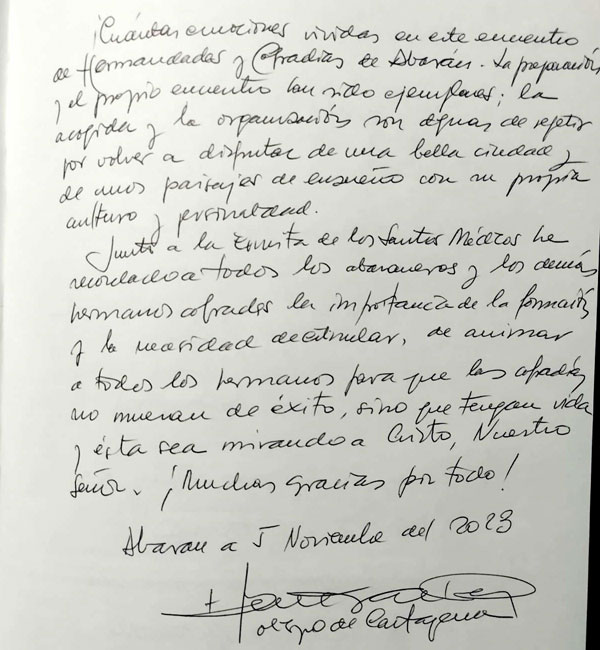 ¡Cuántas emociones vividas en este encuentro
de Hermandades y Cofradías de Abarán. La preparación
y el propio encuentro han sido ejemplares; la
acogida y la organización son dignas de repetir
por volver a disfrutar de una bella ciudad y
de unos paisajes de ensueño con su propia
cultura y personalidad.
Junto a la Ermita de los Santos Médicos he
recordado a todos los abaraneros y los demás
hermanos cofrades la importancia de la formación
y la necesidad de estimular, de animar
a todos los hermanos para que las cofradías
no mueran de éxito, sino que tengan vida
y ésta sea mirando a Cristo, Nuestro
Señor. ¡Muchas gracias por todo!
Abarán a 5 Noviembre del 2023
Obispo de Cartagena